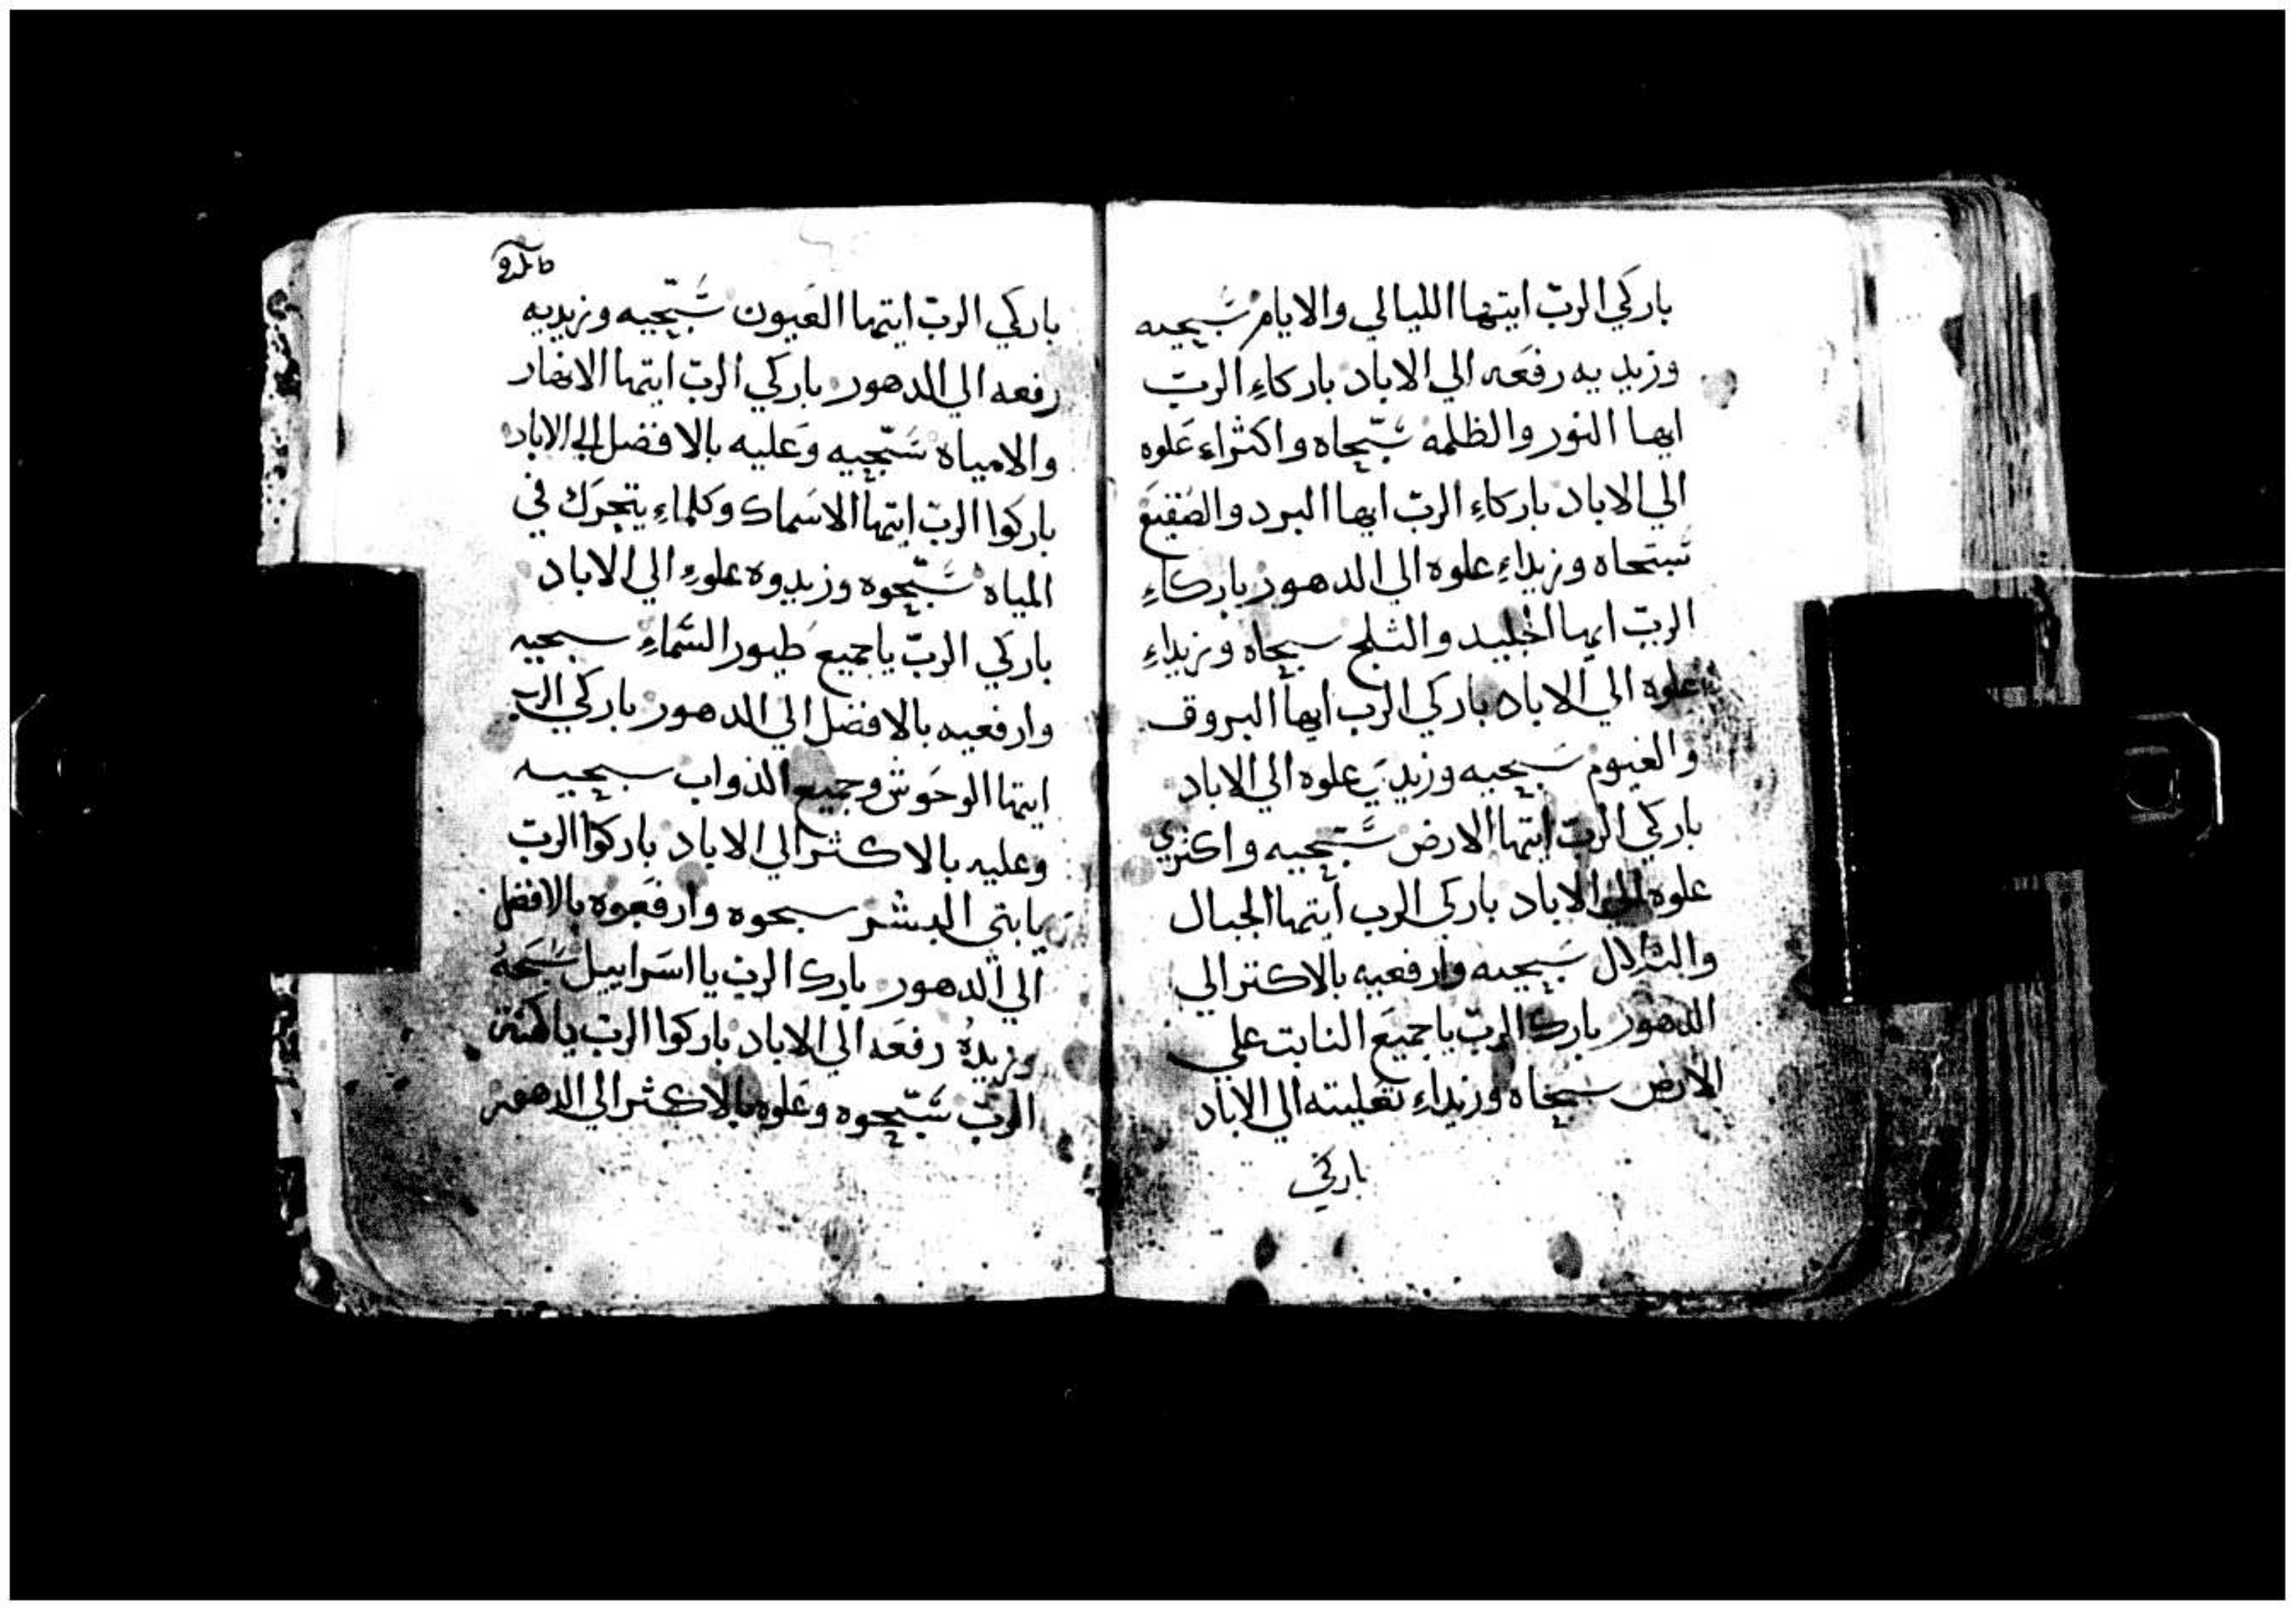 باركي الربّ ايتها الليالي والايام سَبّحيه
وزيديه رفعَه الي الاباد باركاءِ الربّ
ايها النور والظلمه سَبّحاه واكثراءِ عَلوه
الي الاباد باركاءِ الربّ ايها البرد والصَقيَع
سَبّحاه وزيداءِ علوه الي الدهور باركاءِ
الربّ ايها الجليد والثلج سبحاه وزيداءِ
علوه الي الاباد باركي الرب ايها البروق
والغيوم سَبحيه وزيدي علوه الي الاباد
باركي الربّ ايتها الارض سَبّحيه واكثري
علوه الي الاباد باركي الرب ايتها الجبال
والتلال سَبحيه وارفعيه بالاكثر الي
الدهور بارك الربّ ياجميَع النابت علي
الارض سبحاه وزيداءِ تعليته الي الاباد
باركي
باركي الربّ ايتها العَيون سَبّحيه وزيديه
رفعه الي الدهور باركي الربّ ايتها الانهار
والامياه سَبّحيه وَعليه بالافضل الي الاباد
باركوا الربّ ايتها الاسَماك وكلماءِ يتحرَك في
المياه سَبّحوه وزيدوه علوءِ الي الاباد
باركي الربّ ياجميع طيور السَماءِ سبحيه
وارفعيه بالافضل الي الدهور باركي الرب
ايتها الوحَوش وجميع الدواب سبحيه
وعليه بالاكثر الي الاباد باركوا الربّ
يابني البشر سبحوه وارفَعوه بالافضل
الي الدهور بارك الرب يا اسَراييل سَبحَهُ
وزيدهُ رفعَه الي الاباد باركوا الربّ ياكهنة
الربّ سَبّحوه وعَلوه بالاكثر الي الدهور